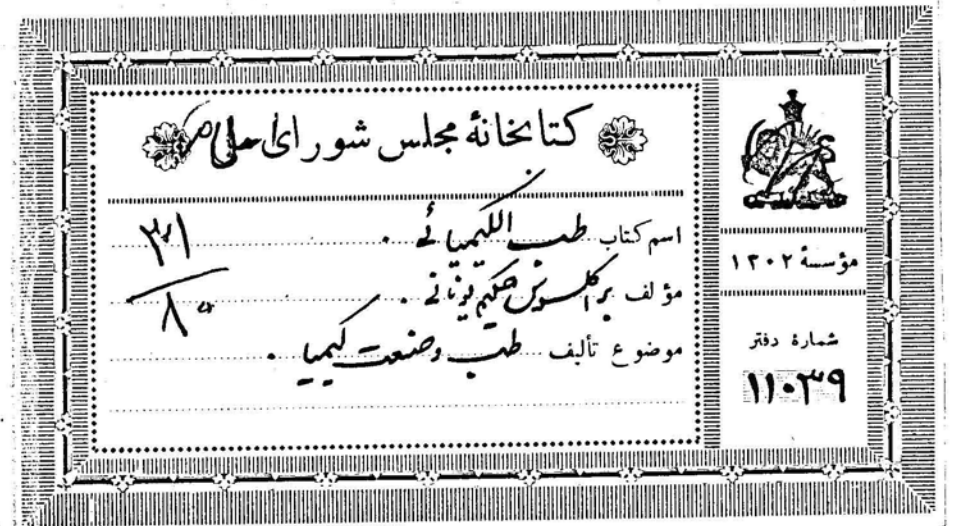 کتابخانهٔ مجلس شورای ملی
اسم کتاب طب الکیمیائی
مؤلف براکلسوس حکیم یونانی
موضوع تألیف طب وصنعت کیمیا
۳۱
۸
مؤسسهٔ ۱۳۰۲
شمارهٔ دفتر
۱۱۰۳۹